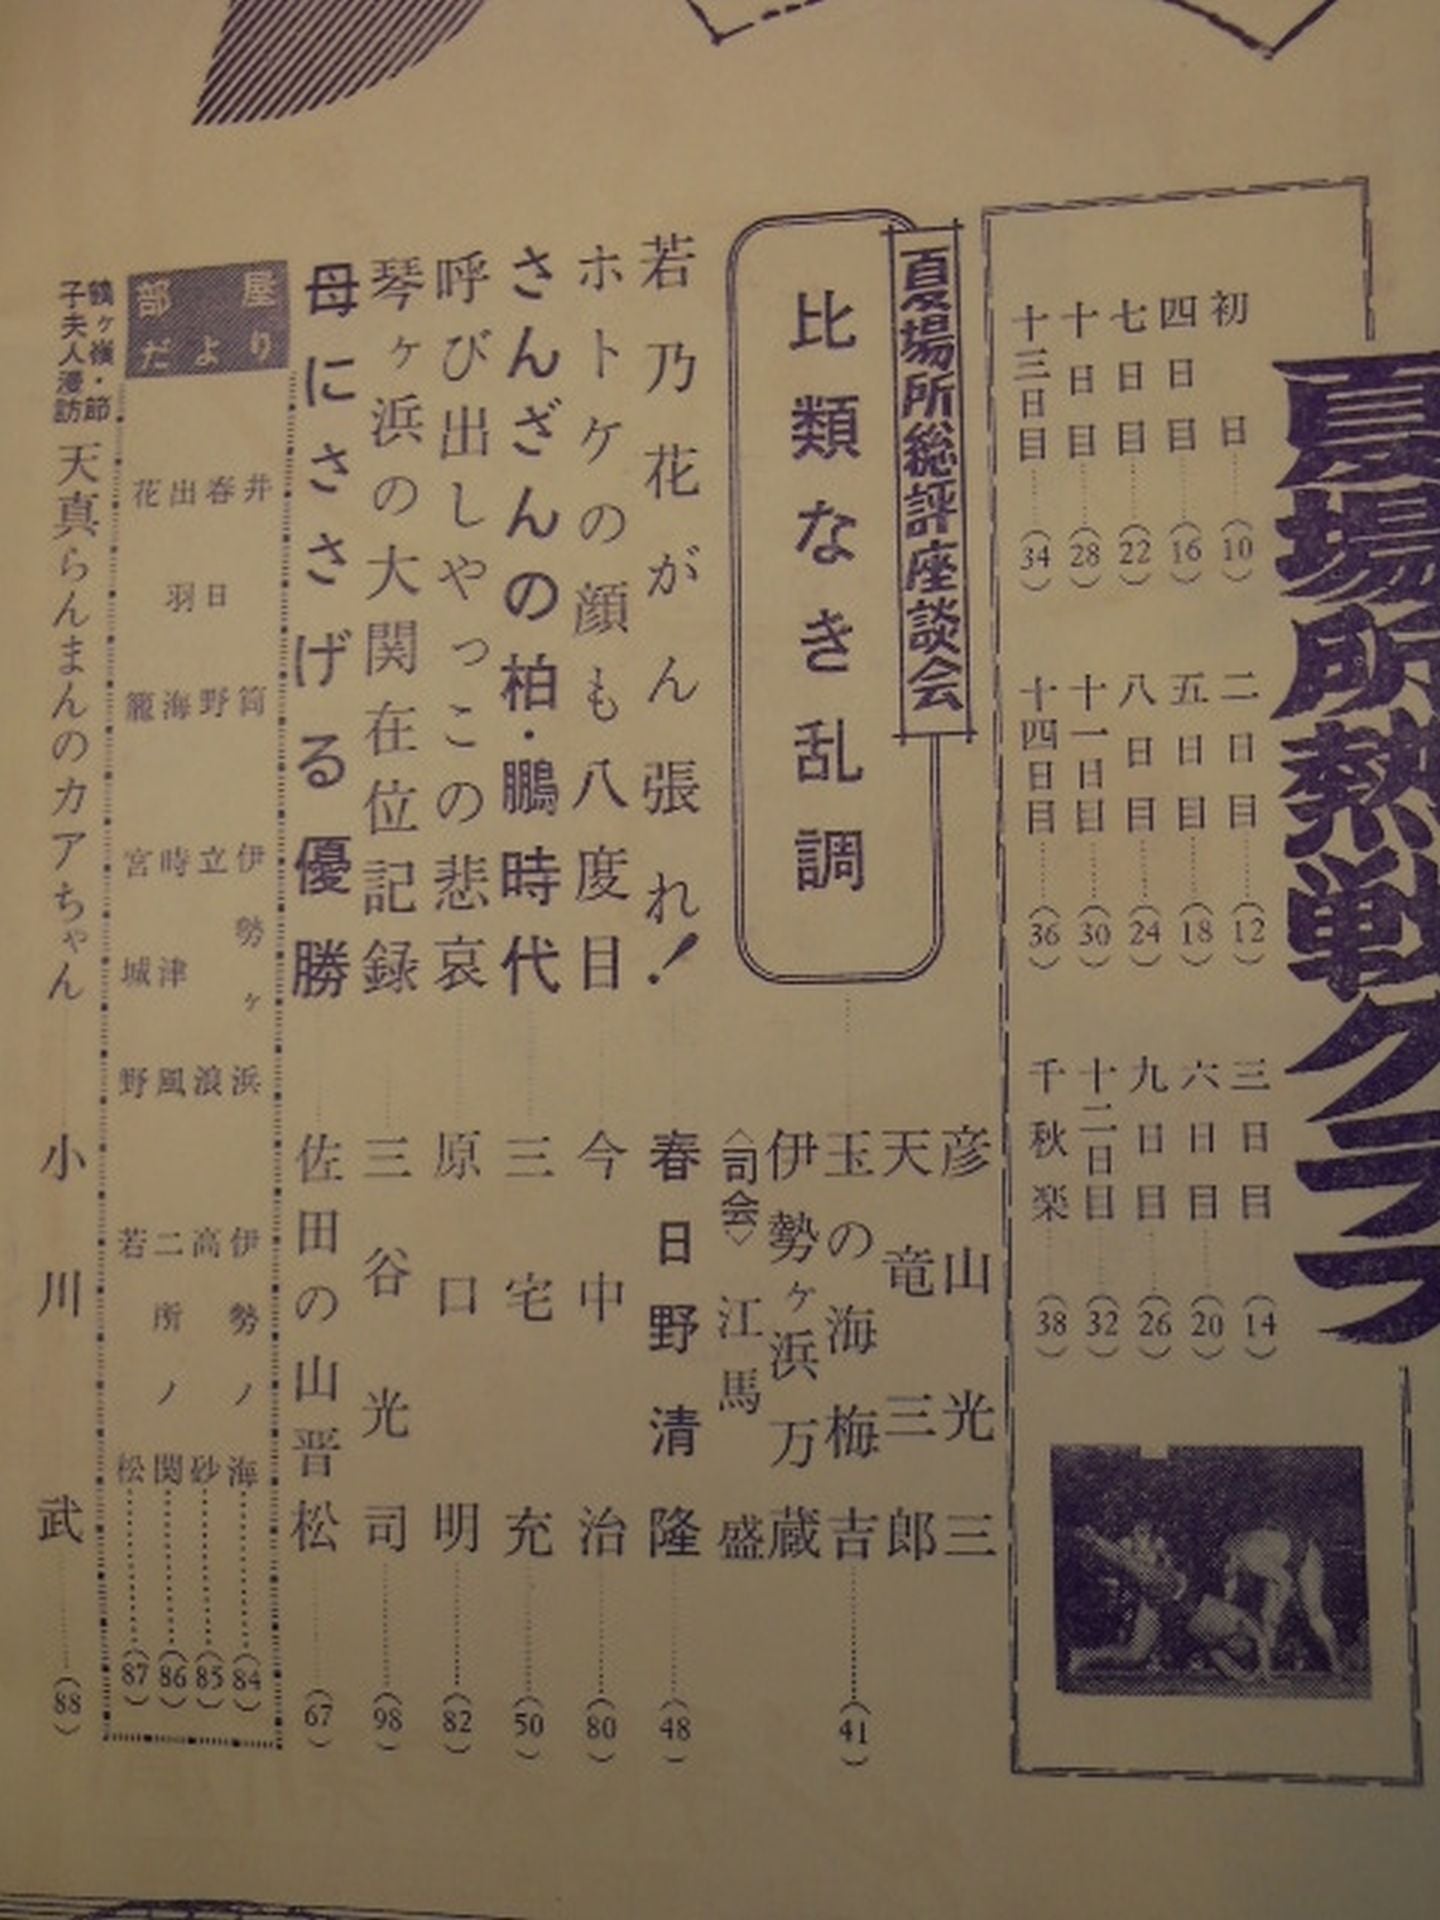 夏場所熱戦グラフ
初日……(10)
二日目……(12)
三日目……(14)
四日目……(16)
五日目……(18)
六日目……(20)
七日目……(22)
八日目……(24)
九日目……(26)
十日目……(28)
十一日目……(30)
十二日目……(32)
十三日目……(34)
十四日目……(36)
千秋楽……(38)
夏場所総評座談会
比類なき乱調……
彦山光三
天竜三郎
玉の海梅吉……(41)
伊勢ヶ浜万蔵
〈司会〉江馬盛
若乃花がん張れ!……春日野清隆……(48)
ホトケの顔も八度目……今中治……(80)
さんざんの柏・鵬時代……三宅充……(50)
呼び出しやっこの悲哀……原口明……(82)
琴ヶ浜の大関在位記録……三谷光司……(98)
母にささげる優勝……佐田の山晋松……(67)
部屋だより
井筒 伊勢ヶ浜 伊勢ノ海……(84)
春日野 立浪 高砂……(85)
出羽海 時津風 二所ノ関……(86)
花籠 宮城野 若松……(87)
鶴ヶ嶺・節子夫人漫訪
天真らんまんのカアちゃん……小川武……(88)